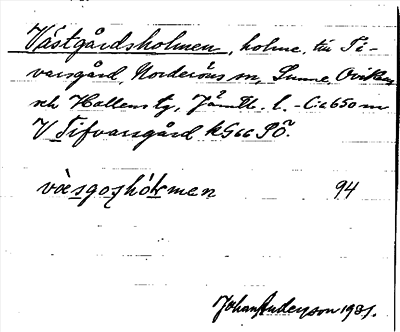 Västgårdsholmen, holme, till Ti-
varsgård, Norderöns sn, Sunne, Oviken
och Hallens tg, Jämtl. l. - C:a 650 m
V Tifvarsgård kS66 SÖ.
94
Johan Anderson 1931.